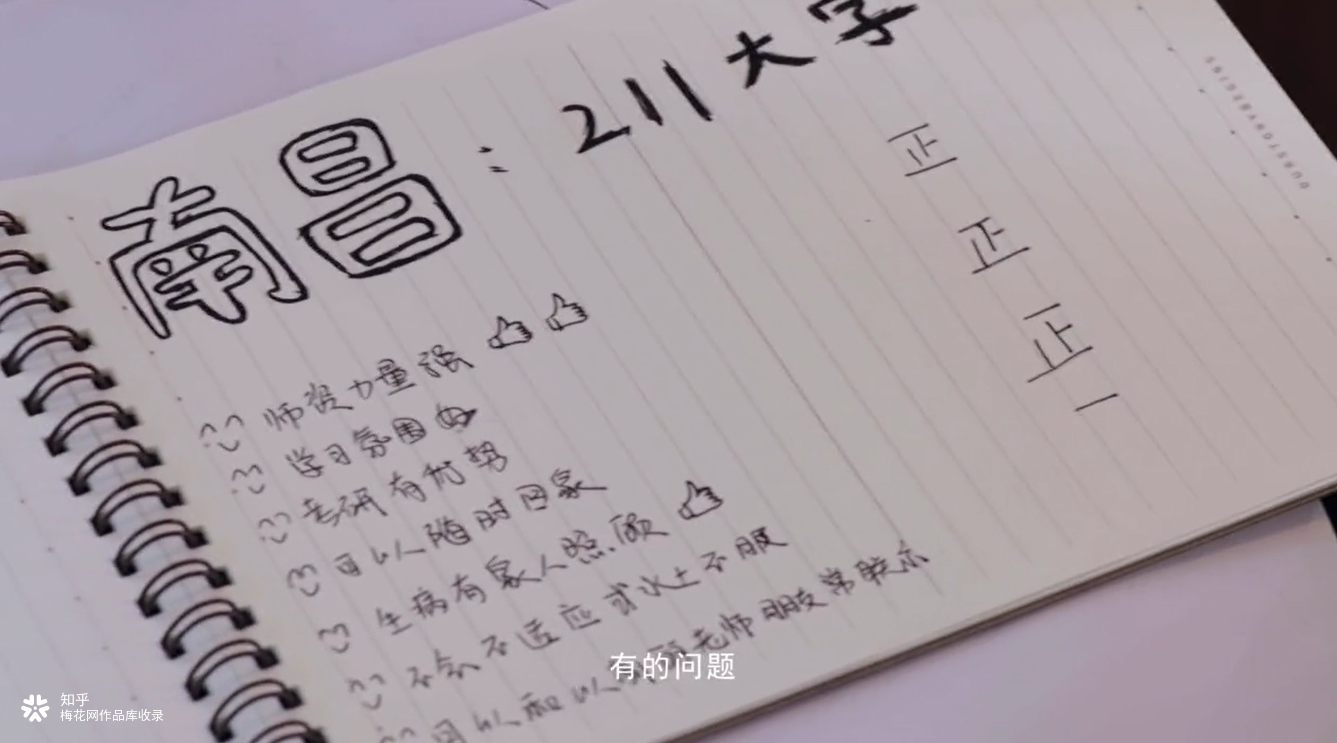 南昌：211大学
正
正
正
一
师资力量强
学习氛围好
考研有优势
可以随时回家
生病有家人照顾
不会不适应或水土不服
可以和以前老师朋友常联系
有的问题
知乎
梅花网作品库收录